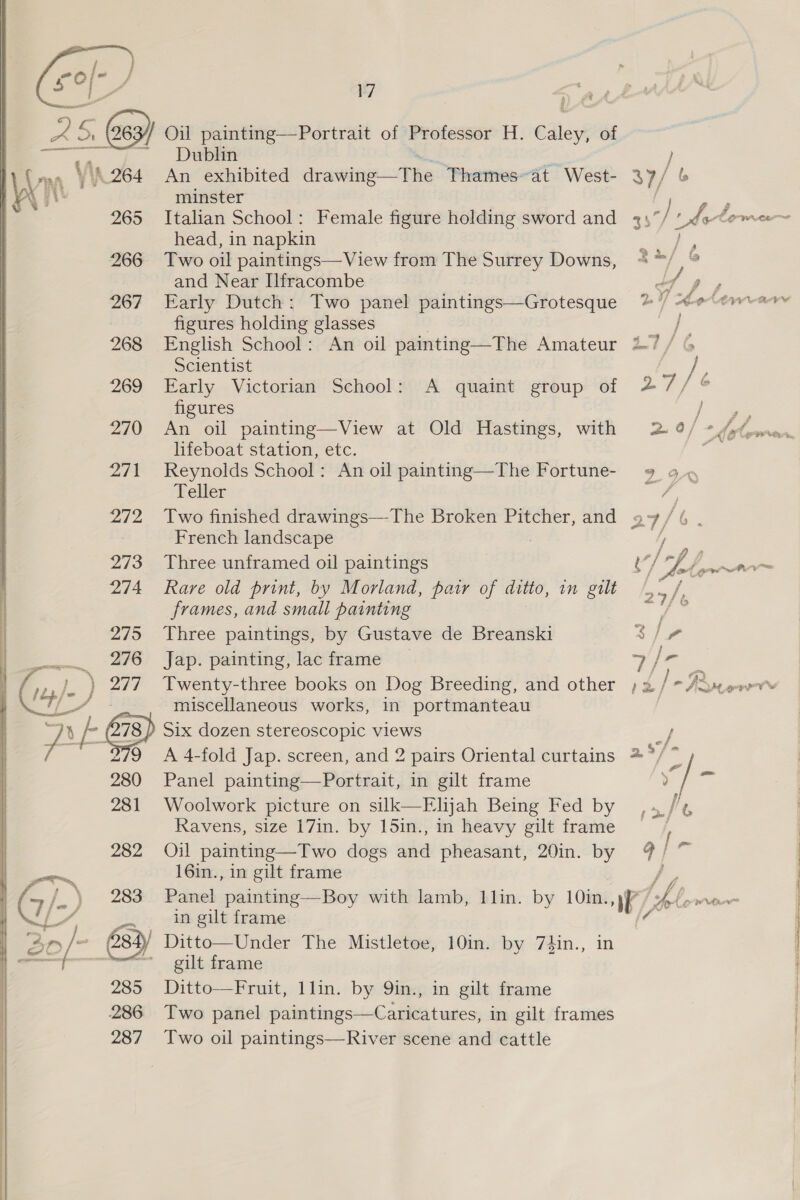 50/-
17
25, 263 Oil painting—Portrait of Professor H. Caley, of
Dublin
264 An exhibited drawing—The Thames at West- 37/6
minster
265 Italian School: Female figure holding sword and 35/-
head, in napkin
266 Two oil paintings—View from The Surrey Downs,
and Near Ilfracombe
267 Early Dutch: Two panel paintings—Grotesque
figures holding glasses
268 English School: An oil painting—The Amateur 27/6
Scientist
269 Early Victorian School: A quaint group of 27/6
figures
270 An oil painting—View at Old Hastings, with 20/-
lifeboat station, etc.
271 Reynolds School: An oil painting—The Fortune-
Teller
272 Two finished drawings—The Broken Pitcher, and 27/6.
French landscape
273 Three unframed oil paintings
274 Rare old print, by Morland, pair of ditto, in gilt 27/6
frames, and small painting
275 Three paintings, by Gustave de Breanski
276 Jap. painting, lac frame 7/-
277 Twenty-three books on Dog Breeding, and other 12/-
miscellaneous works, in portmanteau
278 Six dozen stereoscopic views
279 A 4-fold Jap. screen, and 2 pairs Oriental curtains 25/-
280 Panel painting—Portrait, in gilt frame
281 Woolwork picture on silk—Elijah Being Fed by 12/6
Ravens, size 17in. by 15in., in heavy gilt frame
282 Oil painting—Two dogs and pheasant, 20in. by 9/-
16in., in gilt frame
7/- 283 Panel painting—Boy with lamb, 11in. by 10in.,
in gilt frame
30/- 284 Ditto—Under The Mistletoe, 10in. by 7½in., in
gilt frame
285 Ditto—Fruit, 11in. by 9in., in gilt frame
286 Two panel paintings—Caricatures, in gilt frames
287 Two oil paintings—River scene and cattle